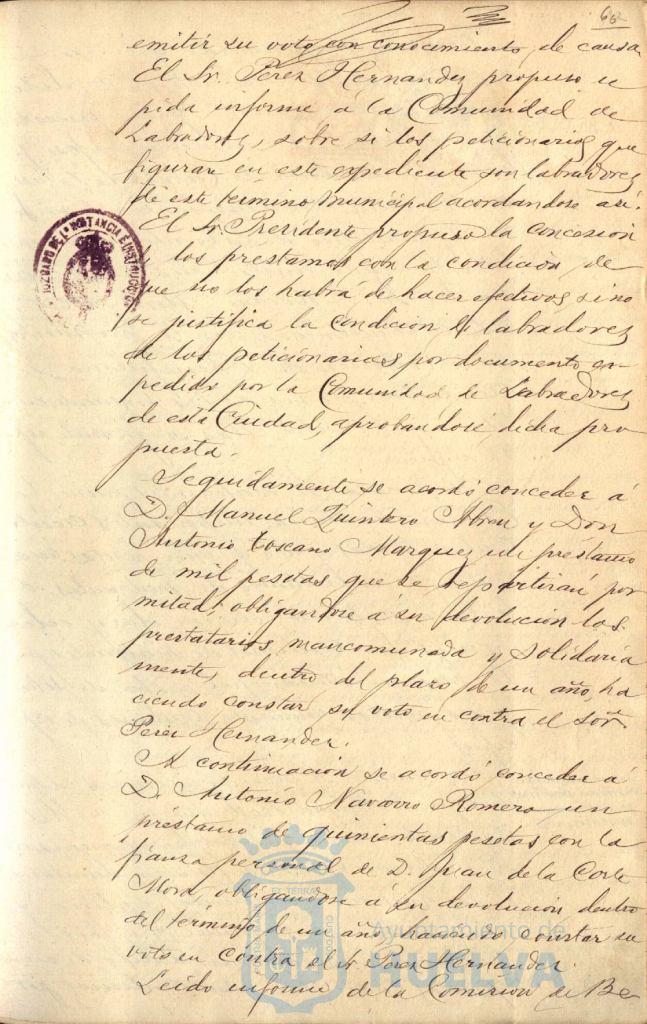 662
emitir su voto con conocimiento de causa
El Sr. Perez Hernandez propuso se
pida informe á la Comunidad de
Labradores, sobre si los peticionarios que
figuran en este expediente son labradores
de este término municipal acordandose así.
El Sr. Presidente propuso la concesion
los prestamos con la condición de
que no los habrá de hacer efectivos si no
se justifica la condicion de labradores
de los peticionarios por documento ex-
pedido por la Comunidad de Labradores
de esta Ciudad, aprobandose dicha pro
puesta.
Seguidamente se acordó conceder á
D. Manuel Quintero Abreu y Don
Antonio Toscano Marquez un prestamo
de mil pesetas que se repartirán por
mitad, obligandose á su devolución los
prestatarios, mancomunada y solidaria
mente, dentro del plazo de un año, ha
ciendo constar su voto en contra el Sor.
Perez Hernandez.
A continuación se acordó conceder á
D. Antonio Navarro Romero un
préstamo de quinientas pesetas con la
fianza personal de D. Juan de la Corte
Mora, obligandose á su devolución dentro
del término de un año haciendo constar su
voto en contra el Sr. Perez Hernández.
Leido informe de la Comisión de Be
JUZGADO DE 1ª INSTANCIA E INSTRUCCION
Ayuntamiento de
HUELVA